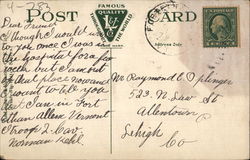 4-282
POST
CARD
FAMOUS
QUALITY
Dear Friend
I thought I would write
to you once I was in
the hospital for a few
weeks but I am out
of that place now and
I want to tell you
that I am in Fort
Ethan Allen Vermont
Troop 2 Cav.
Norman
Mr Raymond O
523 N. Law St
Allentown
Lehigh
Co